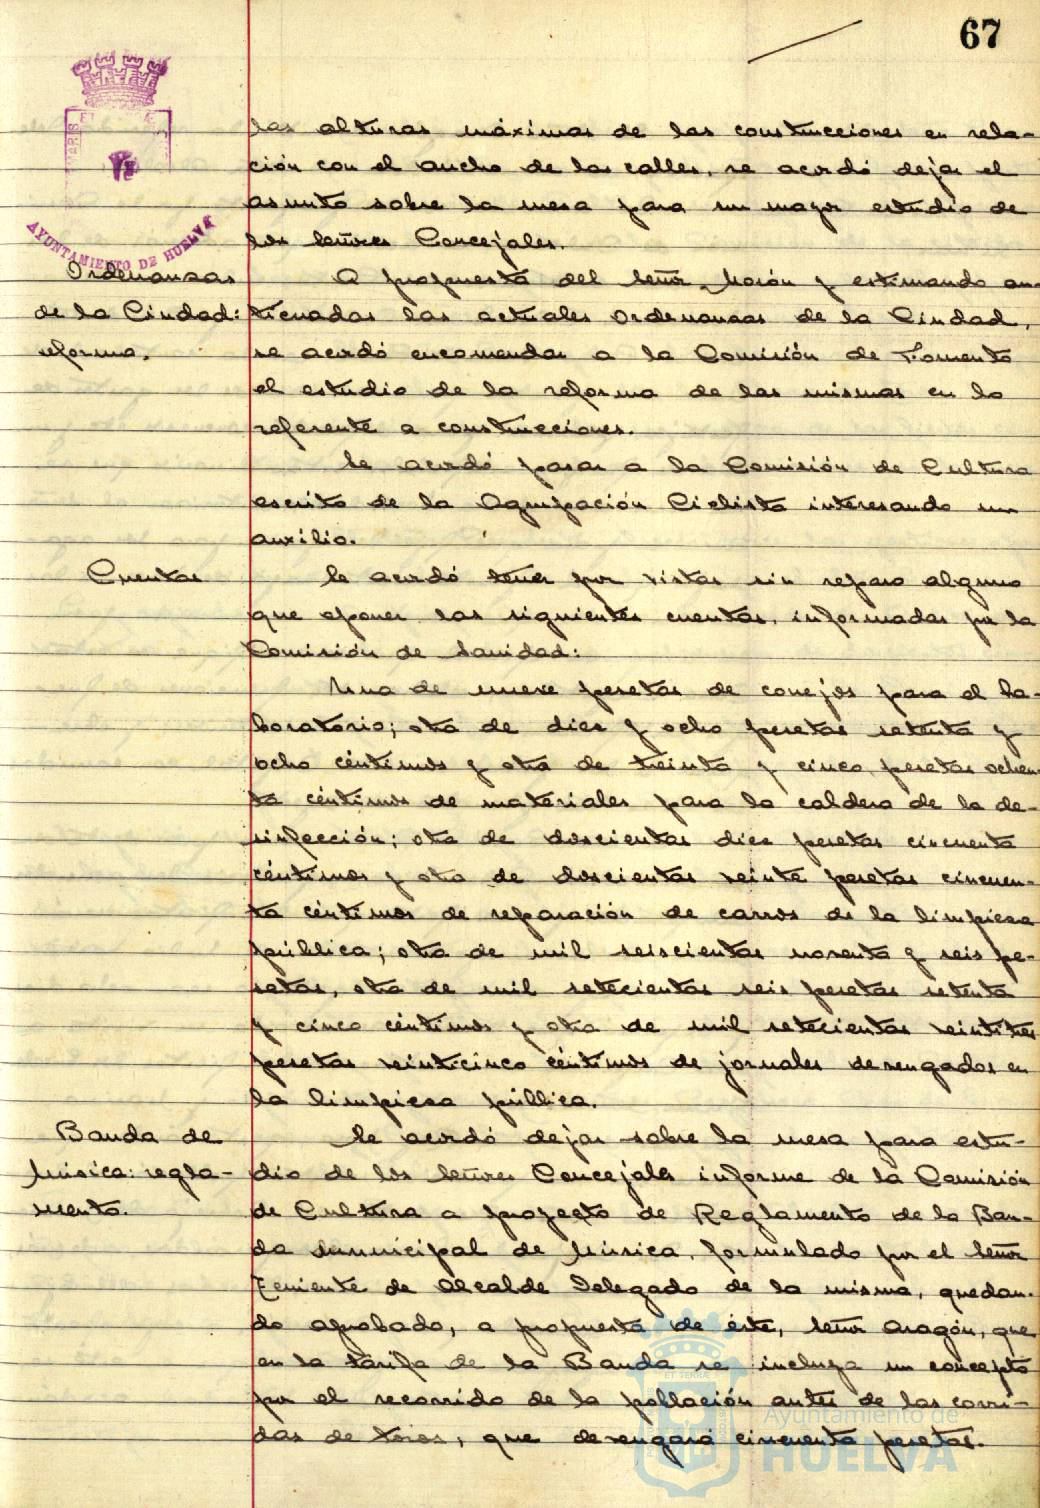 67
las alturas máximas de las construcciones en rela-
ción con el ancho de las calles, se acordó dejar el
asunto sobre la mesa para un mayor estudio de
los Señores Concejales.
AYUNTAMIENTO DE HUELVA
Ordenanzas
de la Ciudad:
reforma.
A propuesta del Señor Morón y estimando an-
ticuadas las actuales Ordenanzas de la Ciudad,
se acordó encomendar a la Comisión de Fomento
el estudio de la reforma de las mismas en lo
referente a construcciones.
Se acordó pasar a la Comisión de Cultura
escrito de la Agrupación Ciclista interesando un
auxilio.
Cuentas
Se acordó tener por vistas sin reparo alguno
que oponer las siguientes cuentas, informadas por la
Comisión de Sanidad:
Una de nueve pesetas de conejos para el La-
boratorio; otra de diez y ocho pesetas setenta y
ocho céntimos y otra de treinta y cinco pesetas ochen-
ta céntimos de materiales para la caldera de la de-
sinfección; otra de doscientas diez pesetas cincuenta
céntimos y otra de doscientas veinte pesetas cincuen-
ta céntimos de reparación de carros de la limpieza
pública; otra de mil seiscientas noventa y seis pe-
setas, otra de mil setecientas seis pesetas setenta
y cinco céntimos y otra de mil setecientas veintitres
pesetas veinticinco céntimos de jornales devengados en
la limpieza pública.
Banda de
Música: regla-
mento.
Se acordó dejar sobre la mesa para estu-
dio de los Señores Concejales informe de la Comisión
de Cultura a proyecto de Reglamento de la Ban-
da Municipal de Música, formulado por el Señor
Teniente de Alcalde Delegado de la misma, quedan-
do aprobado, a propuesta de éste, Señor Aragón, que
en la tarifa de la Banda se incluya un concepto
por el recorrido de la población antes de las corri-
das de toros, que devengará cincuenta pesetas.
Ayuntamiento de
HUELVA